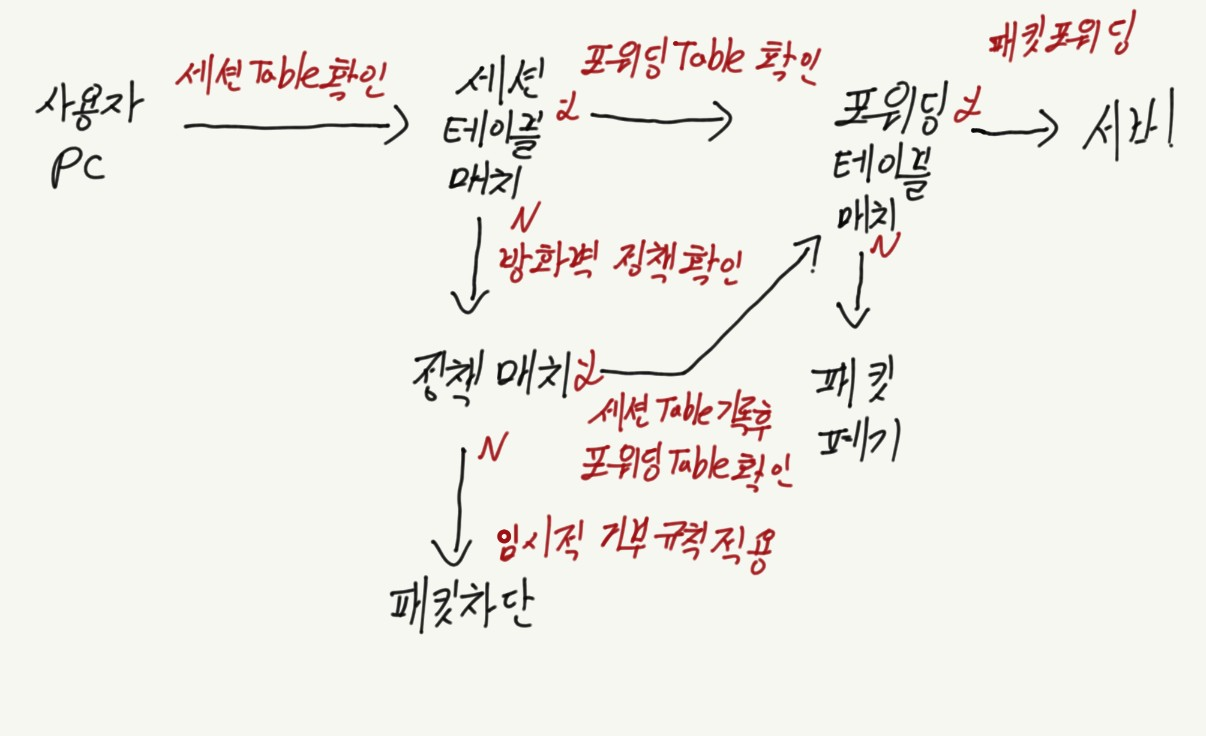 사용자
PC
세션Table확인
세션
테이블
매치
Y
포워딩Table 확인
포워딩
테이블
매치
Y
패킷포워딩
서버
N
방화벽 정책확인
N
정책 매치
Y
세션 Table기록후
포워딩Table확인
패킷
폐기
N
임시적 거부규칙적용
패킷차단